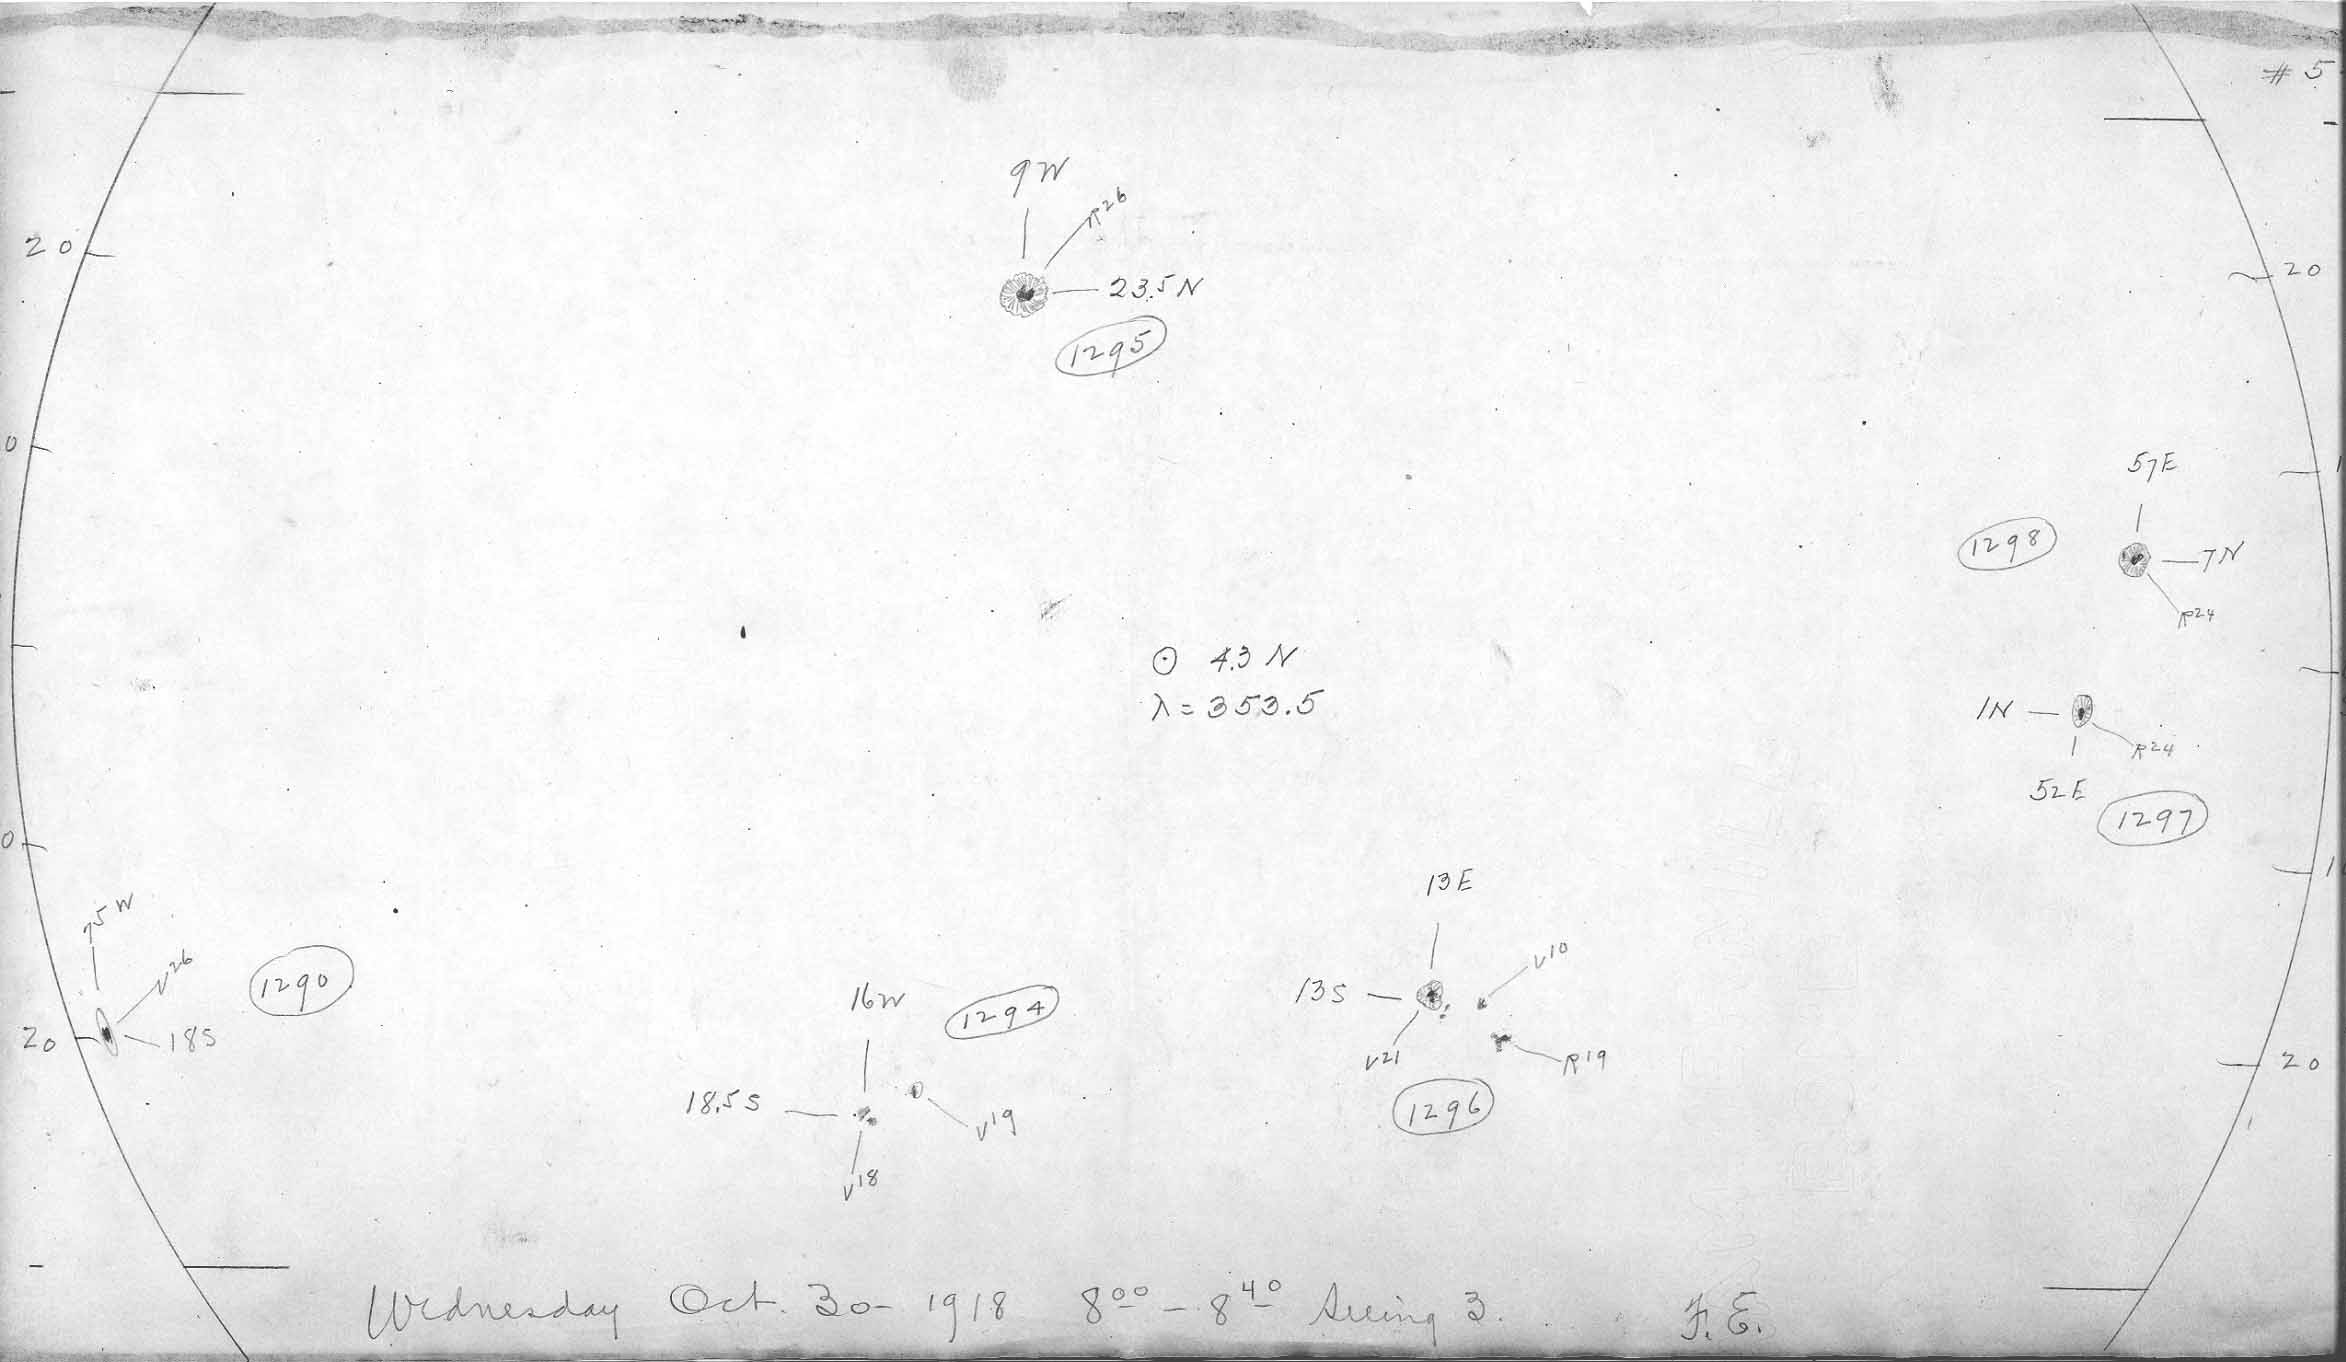 # 5
9W
R26
20
23.5 N
20
1295
0
57E
1298
7N
R24
⊙ 4.3 N
λ = 353.5
1N
R24
52E
1297
0
13E
75W
V26
1290
18S
20
16W
1294
18.5 S
V19
V18
V10
13S
V21
R19
1296
20
Wednesday Oct. 30 - 1918 8⁰⁰ - 8⁴⁰ Seeing 3. F.E.